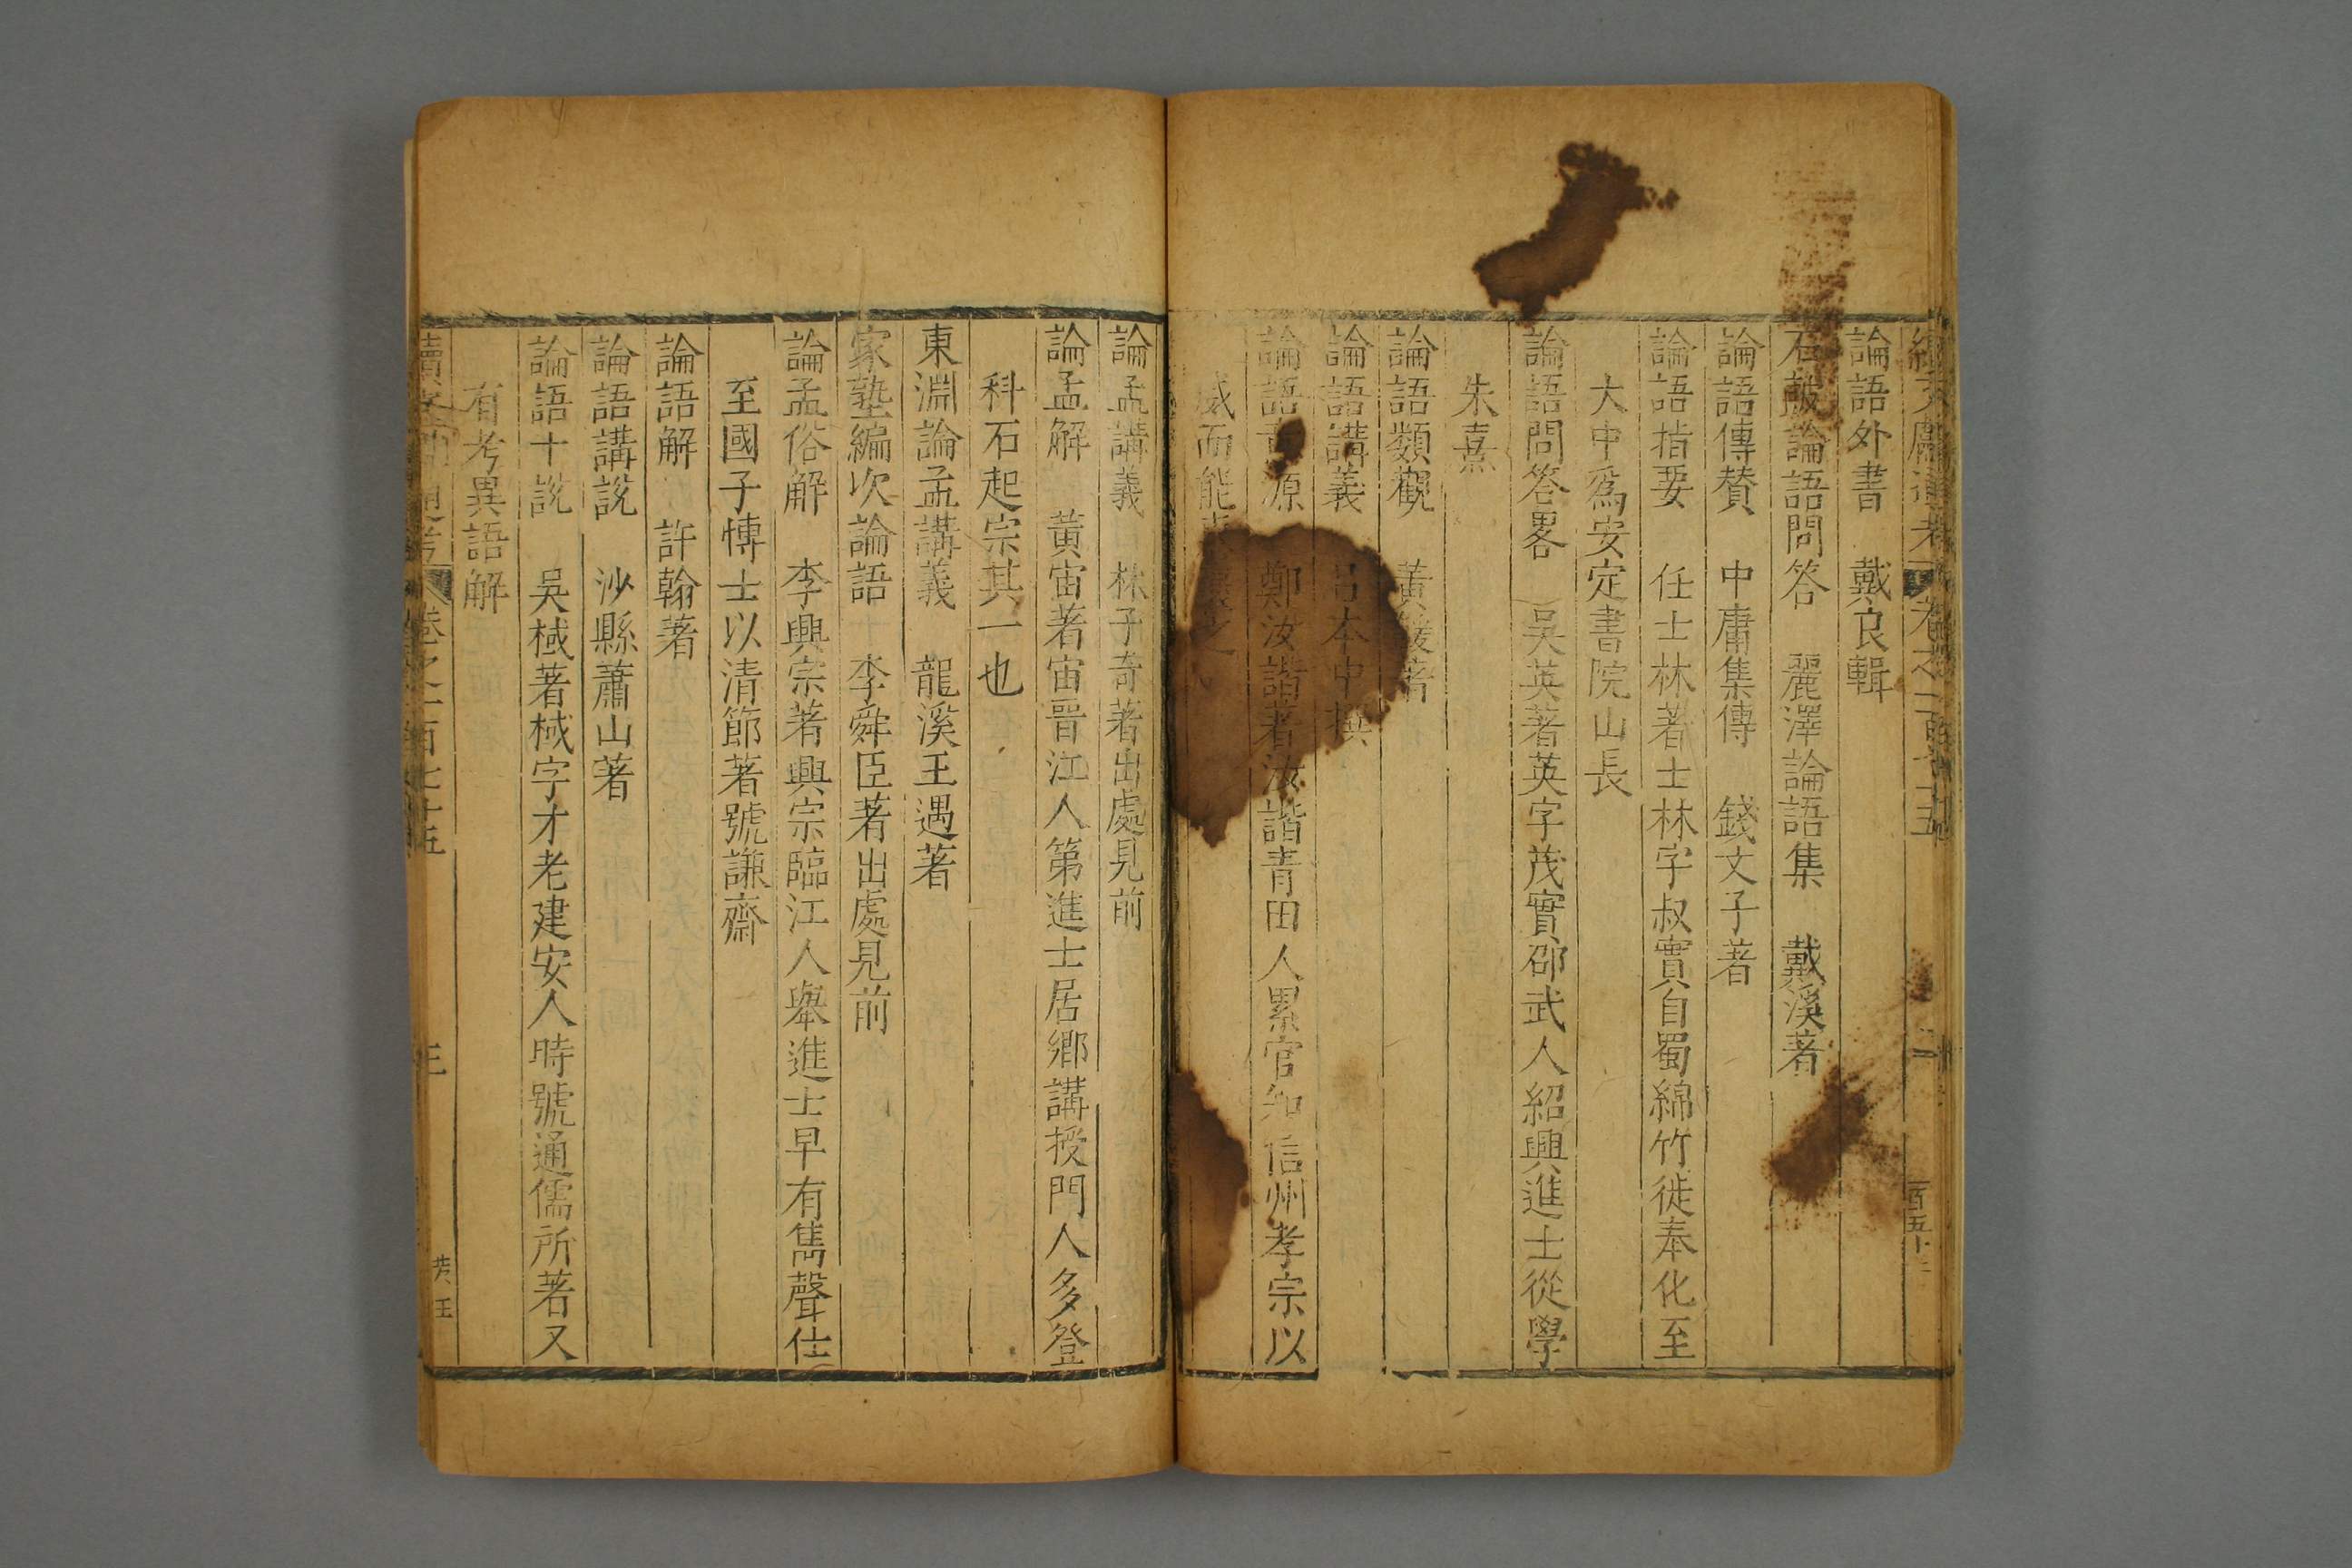 論語外書　戴良輯
石鼓論語問答　麗澤論語集　戴溪著
論語傳贊　中庸集傳　錢文子著
論語指要　任士林著士林字叔實自蜀綿竹徙奉化至
大中爲安定書院山長
論語問答畧　吳英著英字茂實邵武人紹興進士從學
朱熹
論語類觀　黃　著
論語講義　呂本中撰
論語　源　鄭汝諧著汝諧青田人累官知信州孝宗以
威而能
論孟講義　林子奇著出處見前
論孟解　黃宙著宙晉江人第進士居鄉講授門人多登
科石起宗其一也
東淵論孟講義　龍溪王遇著
家塾編次論語　李舜臣著出處見前
論孟俗解　李興宗著興宗臨江人舉進士早有雋聲仕
至國子博士以清節著號謙齋
論語解　許翰著
論語講說　沙縣蕭山著
論語十說　吳棫著棫字才老建安人時號通儒所著又
有考異語解
卷之一百七十五